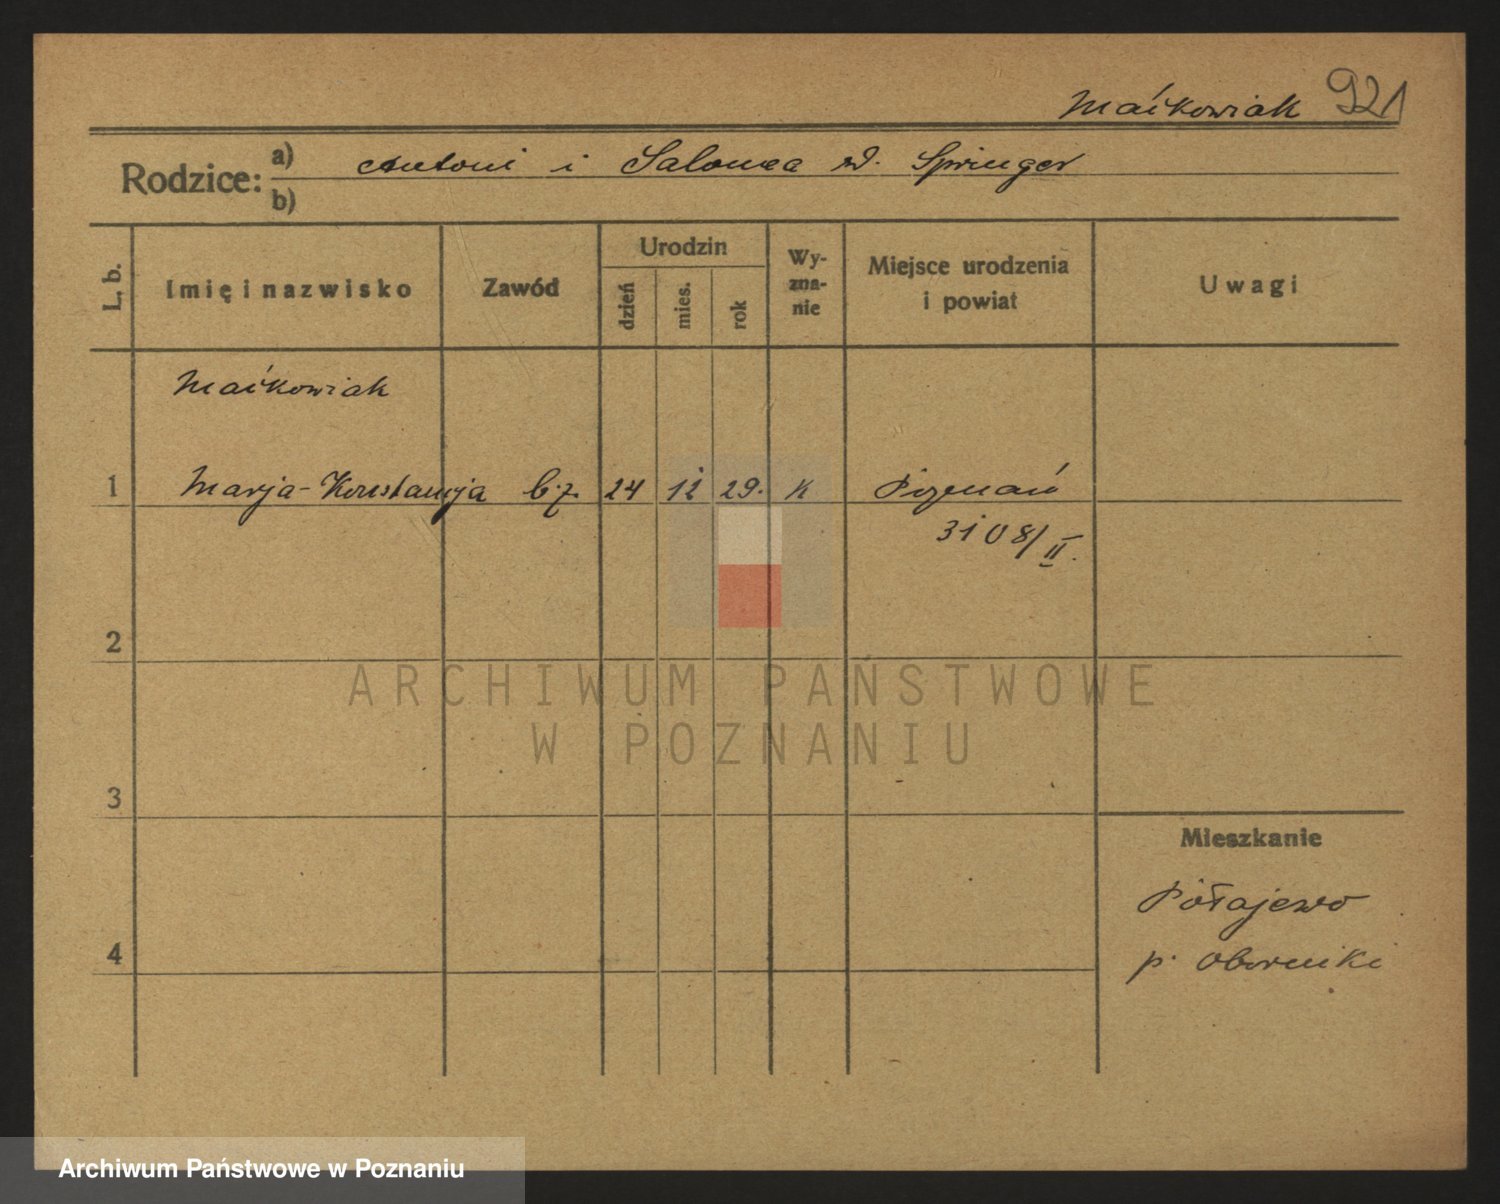 Maćkowiak 921
Rodzice: a) Antoni i Salomea zd. Springer
b)
L. b. Imię i nazwisko Zawód Urodzin dzień mies. rok Wy-zna-nie Miejsce urodzenia i powiat Uwagi
Maćkowiak
1 Marja-Konstancja b.z. 24 12 29. k Poznań
3108/II.
2
ARCHIWUM PAŃSTWOWE
W POZNANIU
3
Mieszkanie
Połajewo
4 p. Oborniki
Archiwum Państwowe w Poznaniu